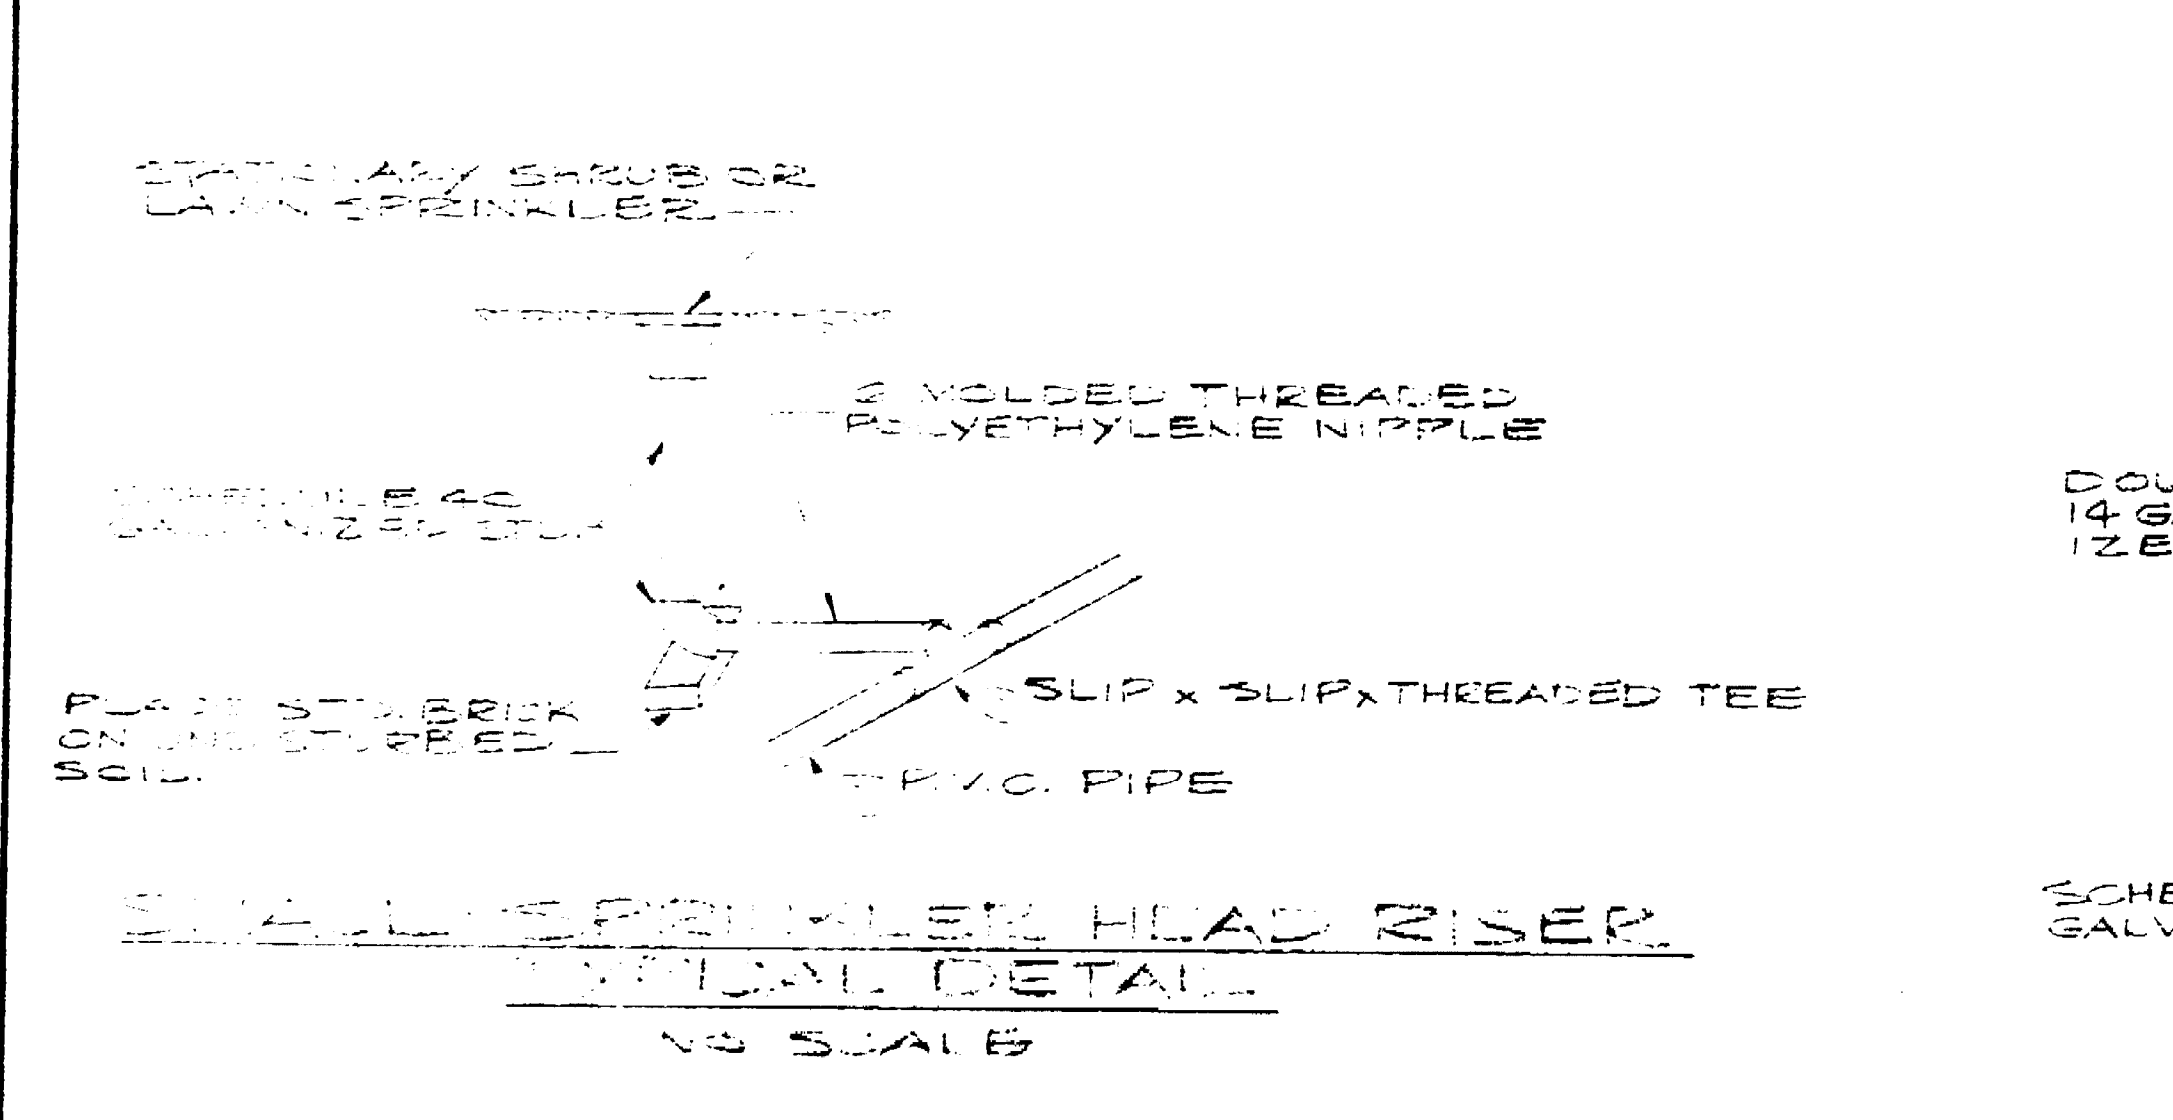 STATIONARY SHRUB OR
LAWN SPRINKLER
MOLDED THREADED
POLYETHYLENE NIPPLE
SCHEDULE 40
GALVANIZED STUP
PLACE STD. BRICK
ON UNDISTURBED
SOIL.
SLIP x SLIP x THREADED TEE
P.V.C. PIPE
SMALL SPRINKLER HEAD RISER
TYPICAL DETAIL
NO SCALE
DOU
14 GA
IZE
SCHE
GALV